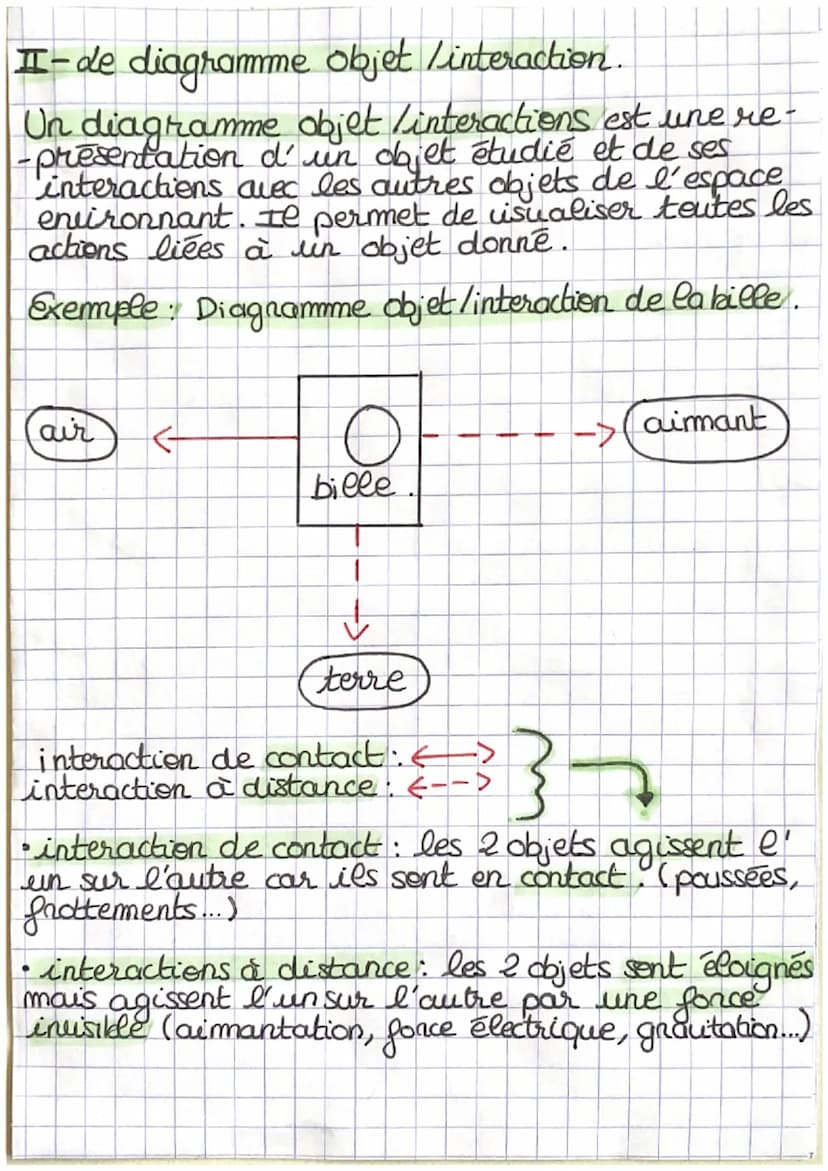 II - Le diagramme objet/interaction.
Un diagramme objet/interactions est une re-
-présentation d'un objet étudié et de ses
interactions avec les autres objets de l'espace
environnant. Il permet de visualiser toutes les
actions liées à un objet donné.
Exemple : Diagramme objet/interaction de la bille.
air
aimant
bille.
terre
interaction de contact :
interaction à distance :
• interaction de contact : les 2 objets agissent l'
un sur l'autre car ils sont en contact. (poussées,
frottements...)
• interactions à distance : les 2 objets sont éloignés
mais agissent l'un sur l'autre par une force
invisible (aimantation, force électrique, gravitation...)